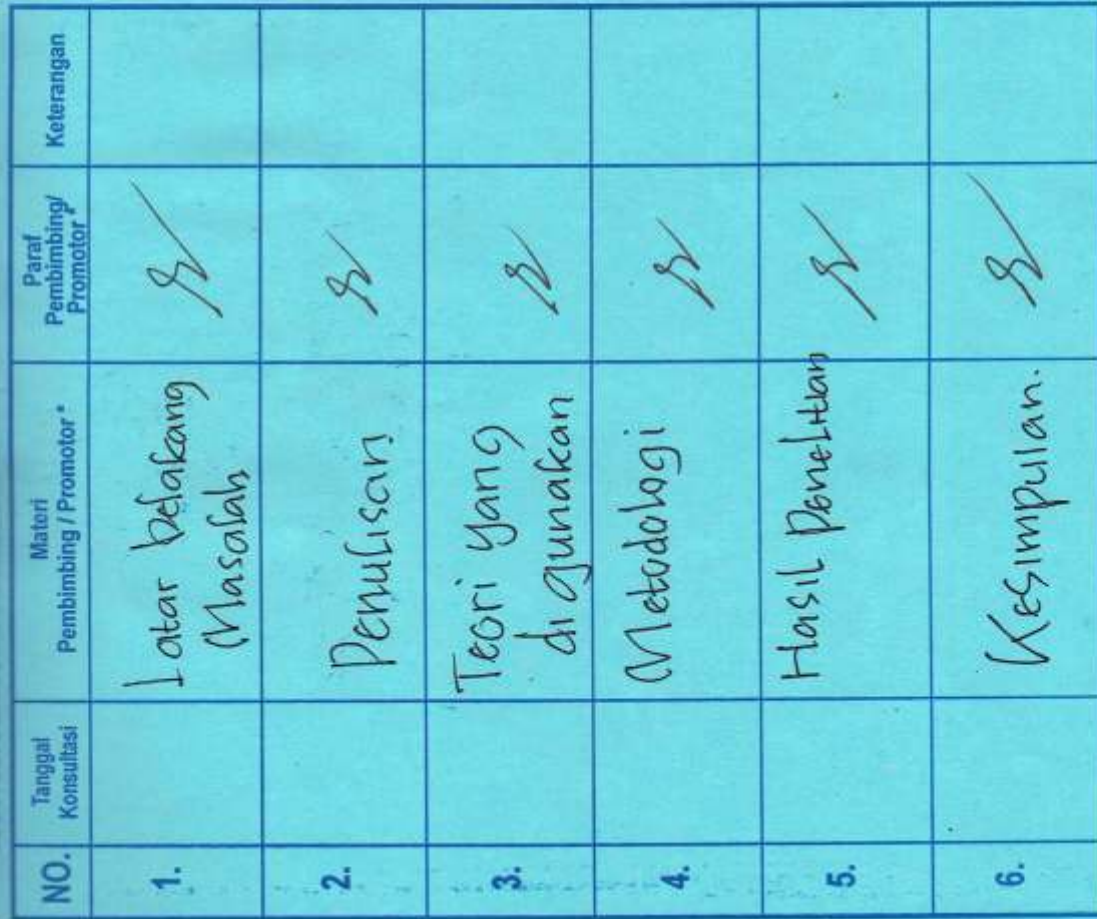 NO.
Tanggal
Konsultasi
Materi
Pembimbing / Promotor*
Paraf
Pembimbing/
Promotor*
Keterangan
1.
Latar belakang
Masalah
2.
Penulisan
3.
Teori yang
digunakan
4.
Metodologi
5.
Hasil Penelitian
6.
Kesimpulan.